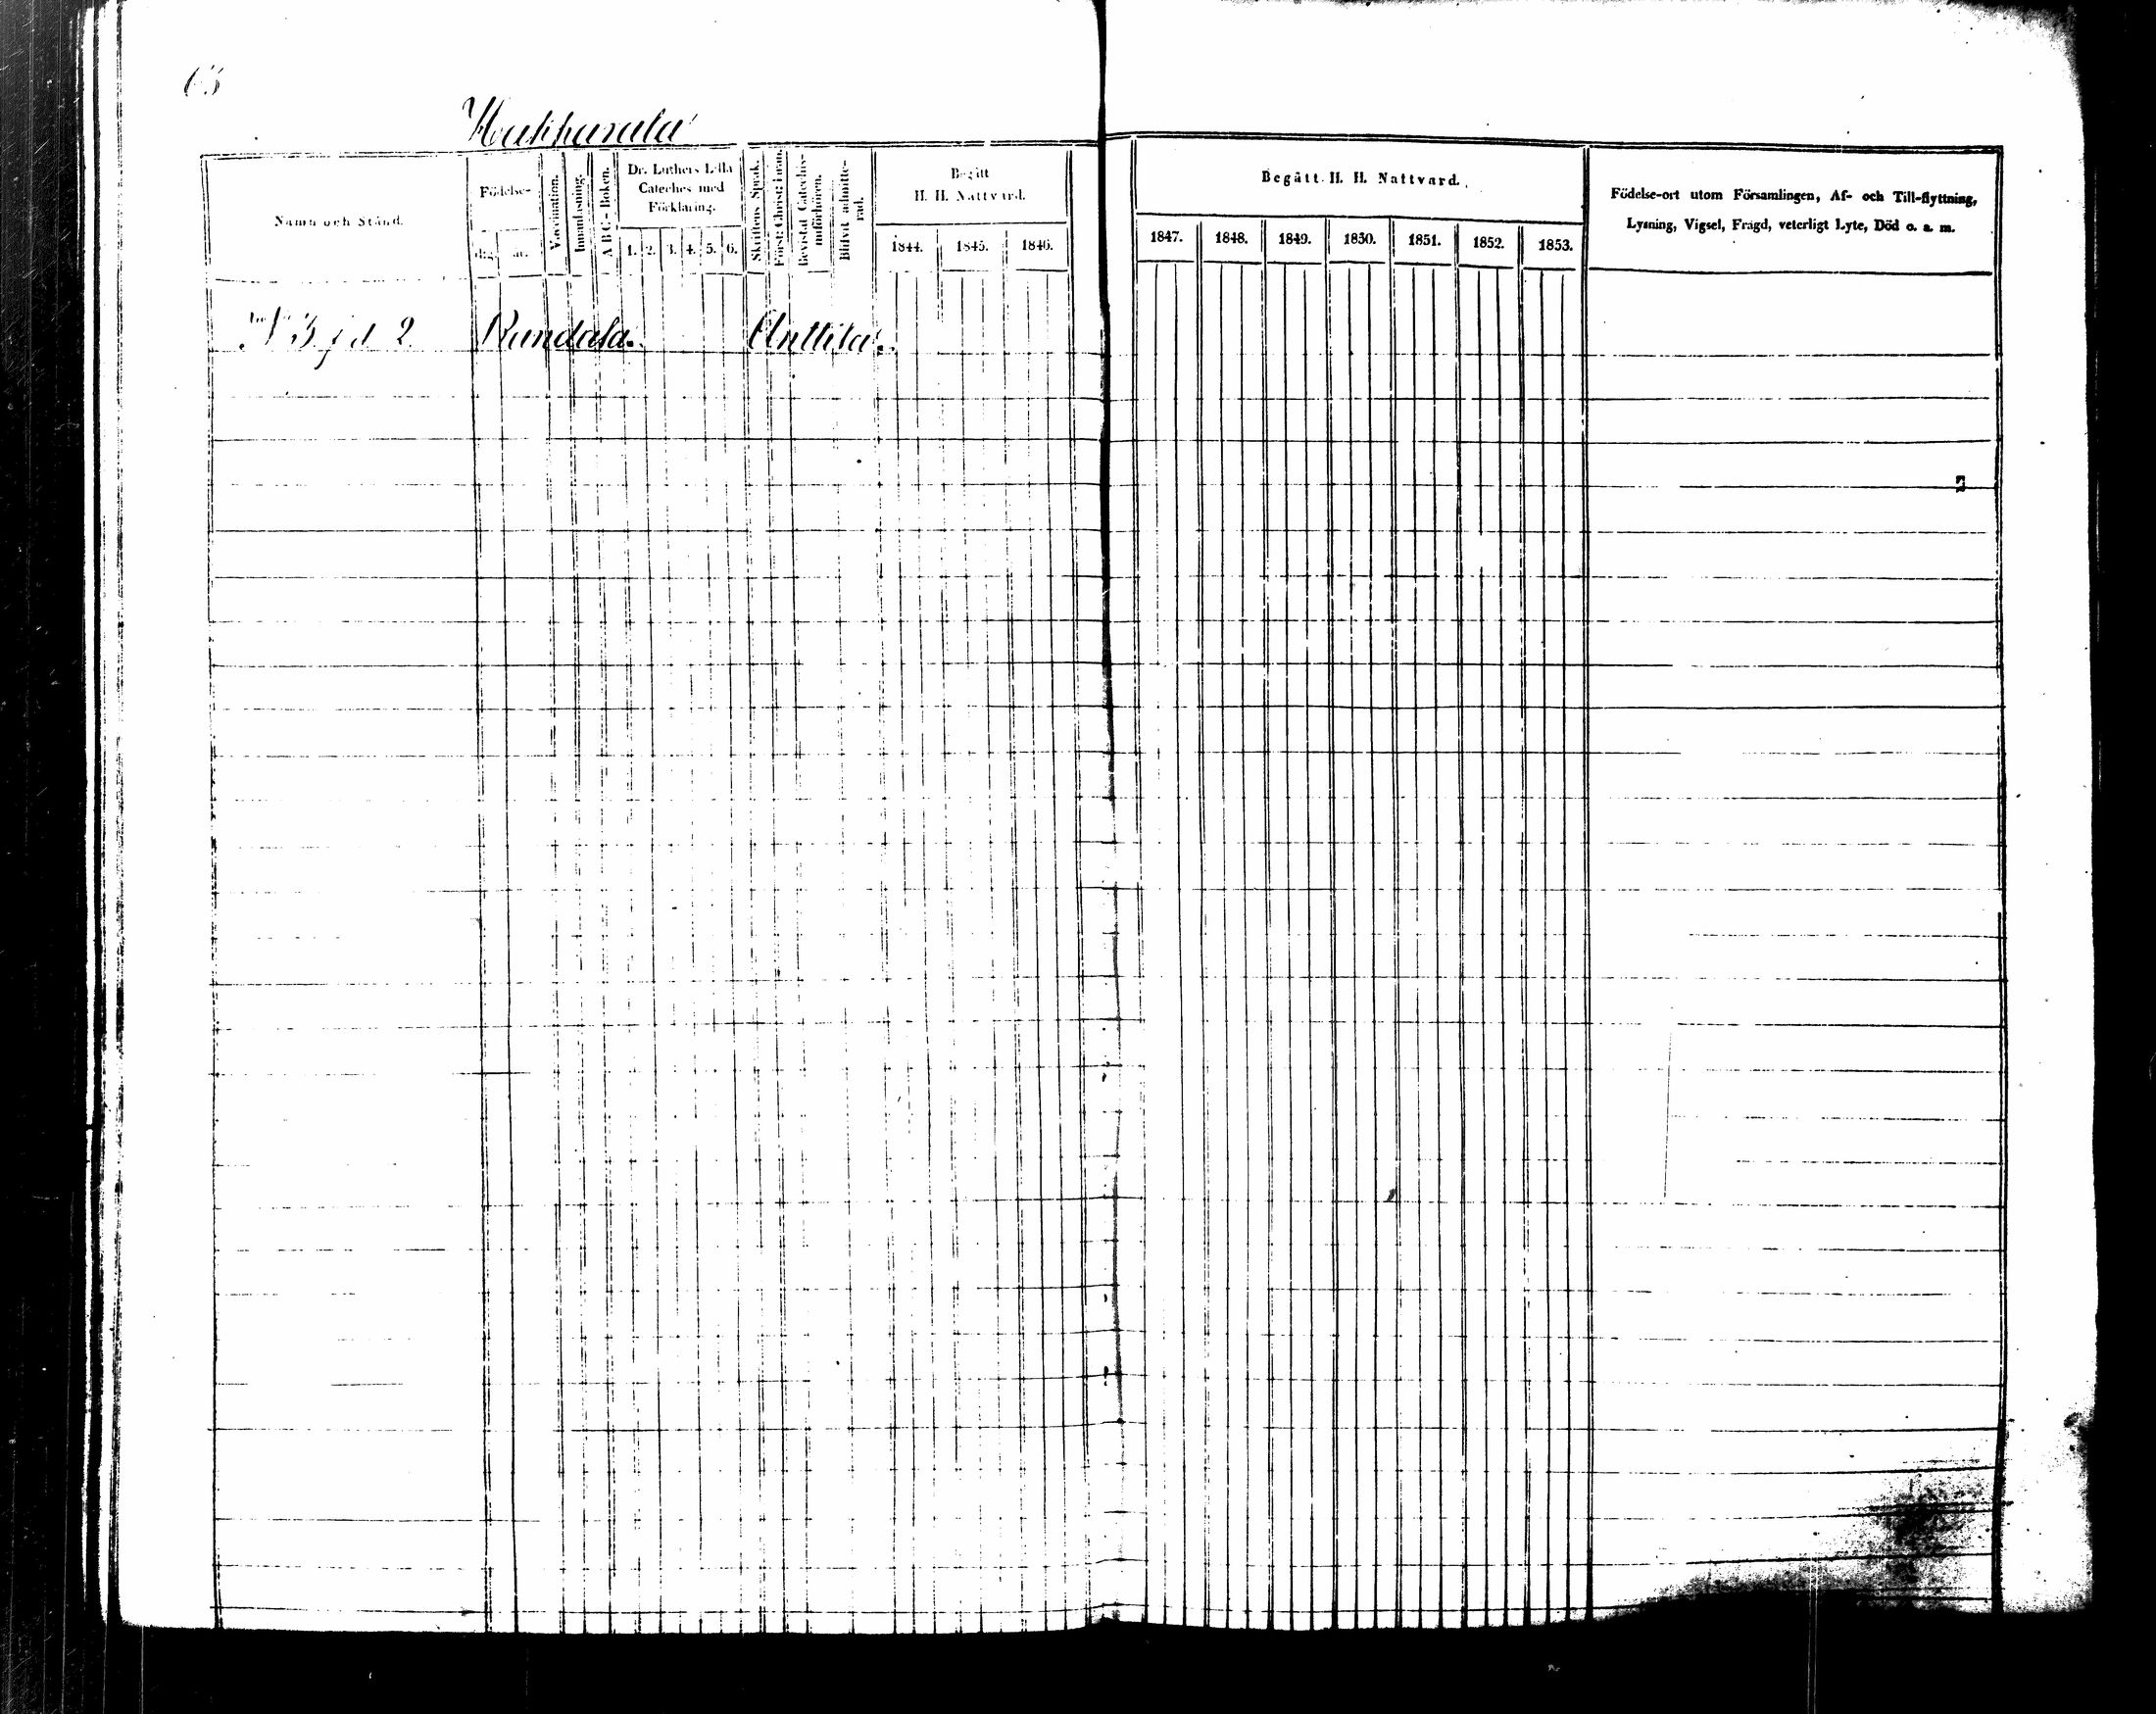 63
Hakkarala
Namn och Stånd.
Födelse-
dag. år.
Vaccination.
Innanläsning.
A B C-Boken.
Dr. Luthers Lilla
Cateches med
Förklaring.
1. 2. 3. 4. 5. 6.
Skriftens Språk.
Bevistat Catechis-
miförhören.
Blifvit admitte-
rad.
Begått
H. H. Nattvard.
1844. 1845. 1846.
Begått H. H. Nattvard.
1847. 1848. 1849. 1850. 1851. 1852. 1853.
Födelse-ort utom Församlingen, Af- och Till-flyttning,
Lysning, Vigsel, Frägd, veterligt Lyte, Död o. a. m.
N 3 j d 2. Rundala. Anttila.